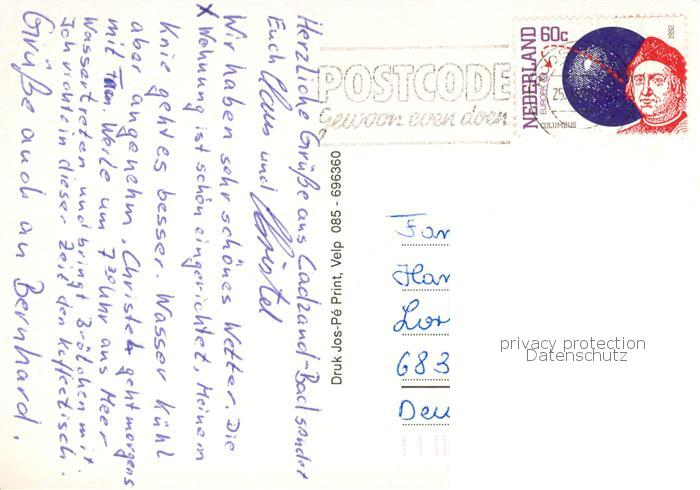 Herzliche Grüße aus Cadzand-Bad sendet
Euch Claus und Christel
Wir haben sehr schönes Wetter. Die
X Wohnung ist schön eingerichtet, Meinem
Knie geht es besser. Wasser kühl
aber angenehm, Christel geht morgens
mit Weile um 7 30 Uhr ans Meer
Wassertreten und bringt Brötchen mit
Ich richte in dieser Zeit den Kaffeetisch.
Grüße auch an Bernhard.
Druk Jos-Pé Print, Velp 085 - 696360
POSTCODE
Gewoon even doen
NEDERLAND
60c
EUROPA
COLUMBUS
1992
25
Fam
Han
Lor
683
Deu
privacy protection
Datenschutz